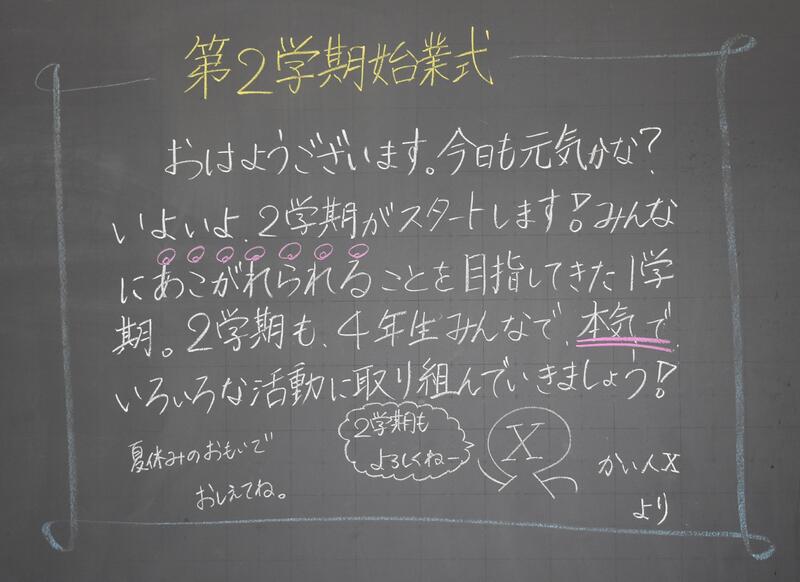 第2学期始業式
おはようございます。今日も元気かな?
いよいよ、2学期がスタートします!みんな
にあこがれられることを目指してきた1学
期。2学期も、4年生みんなで、本気で、
いろいろな活動に取り組んでいきましょう!
2学期も
よろしくねー
X
夏休みのおもいで
おしえてね。
かい人X
より